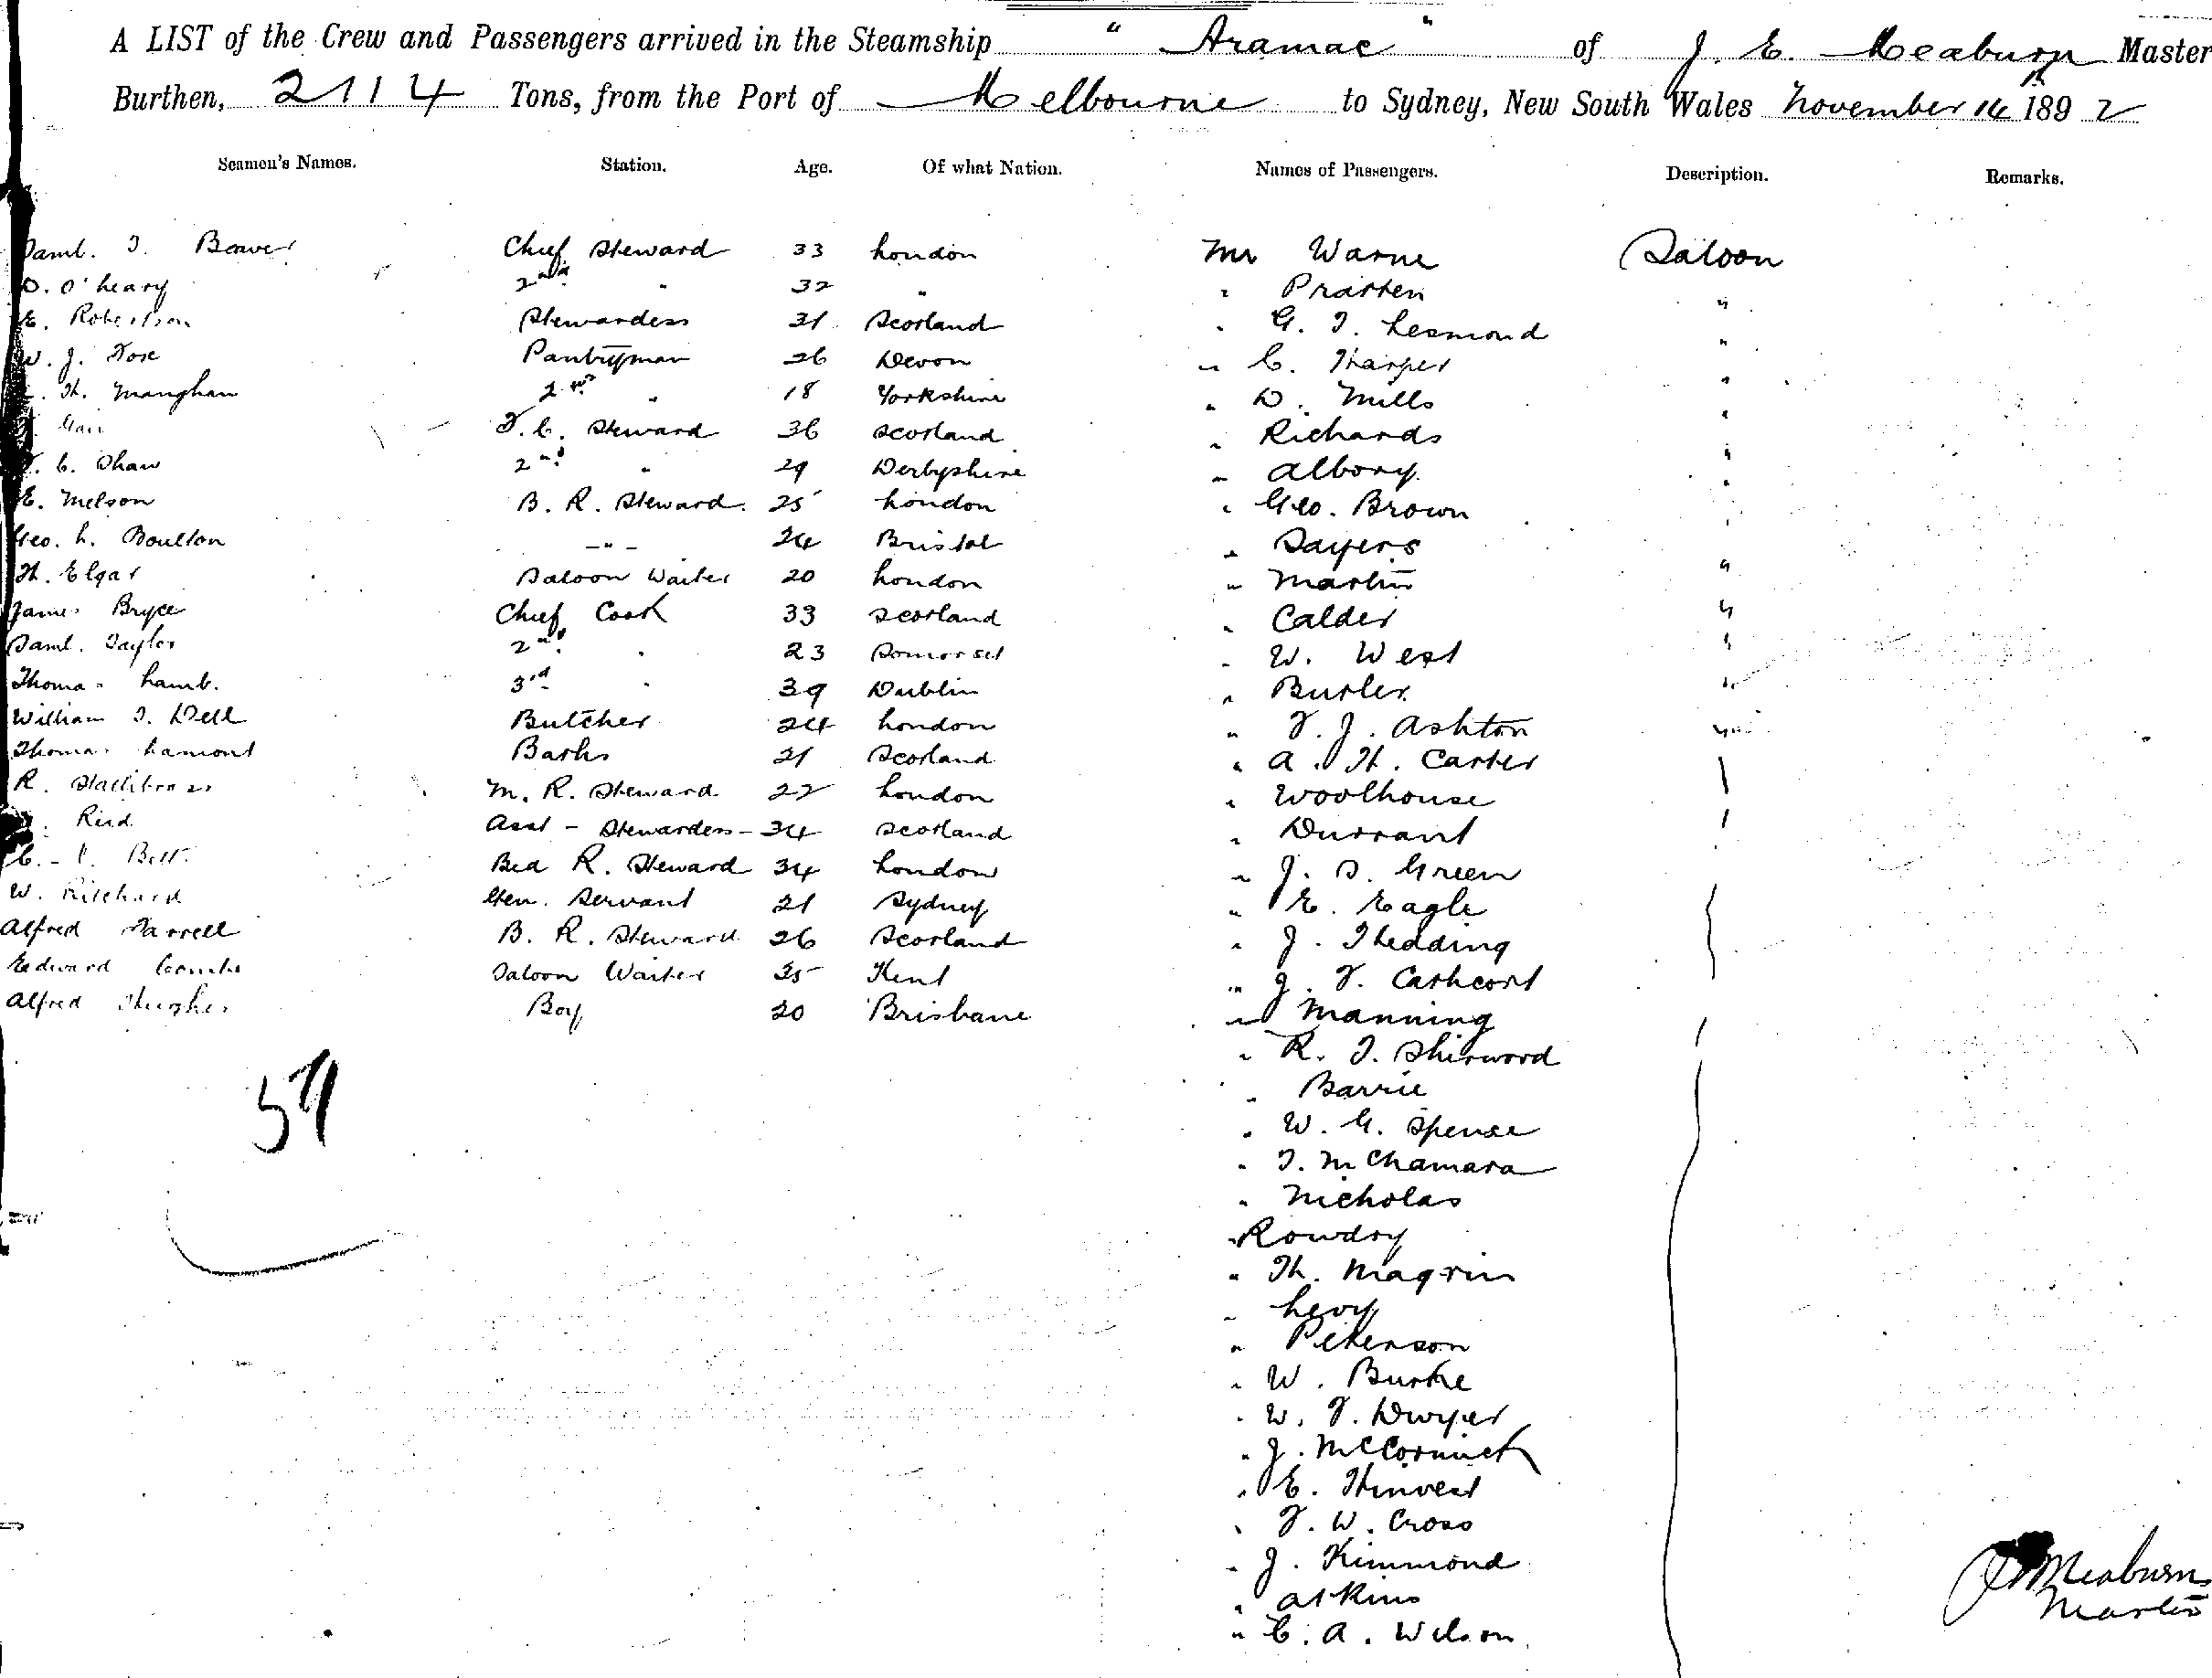 A LIST of the Crew and Passengers arrived in the Steamship " Aramac " of J. E. Meaburn Master
Burthen, 2114 Tons, from the Port of Melbourne to Sydney, New South Wales November 14th 1892
Seamen's Names. Station. Age. Of what Nation. Names of Passengers. Description. Remarks.
Saml. T. Beaver Chief Steward 33 London Mr Warne Saloon
D. O'Leary 2nd " 32 " " Pratten "
E. Robertson Stewardess 31 Scotland " G. T. Lesmond "
W. J. Pantryman 26 Devon " C. Harper "
H. Manghan 2nd " 18 Yorkshire " D. Mills "
F. C. Steward 36 Scotland " Richards "
C. Shaw 2nd " 29 Derbyshire " Albory "
E. Melson B. R. Steward. 25 London " Geo. Brown "
Geo. L. Boulton -"- 24 Bristol " Sayers
H. Elgar Saloon Waiter 20 London " Martin "
James Bryce Chief Cook 33 Scotland " Calder "
Saml. Taylor 2nd " 23 Somerset " W. West "
Thomas Lamb. 3rd " 39 Dublin " Butler "
William T. Dell Butcher 24 London " F. J. Ashton "
Thomas Lamont Baths 21 Scotland " A. H. Carter
R. M. R. Steward 22 London " Woolhouse
Reid Asst - Stewardess - 34 Scotland " Durrant
C. Bett. Bed R. Steward 34 London " J. S. Green
W. Pritchard Gen. Servant 21 Sydney " E. Eagle
Alfred Farrell B. R. Steward 26 Scotland " J. Hedding
Edward Coombs Saloon Waiter 25 Kent " J. F. Cathcort
Alfred Hughes Boy 20 Brisbane " Manning
" R. T. Shirwood
59
" Barrie
" W. G. Spence
" T. McNamara
" Nicholas
" Rowdry
" H. Magrin
" Levy
" Peterson
" W. Burke
" W. F. Dwyer
" J. McCormick
" E. Hinvest
" F. W. Cross
" J. Kimmond
" Atkins
" C. A. Wilson
J E Meaburn
Master